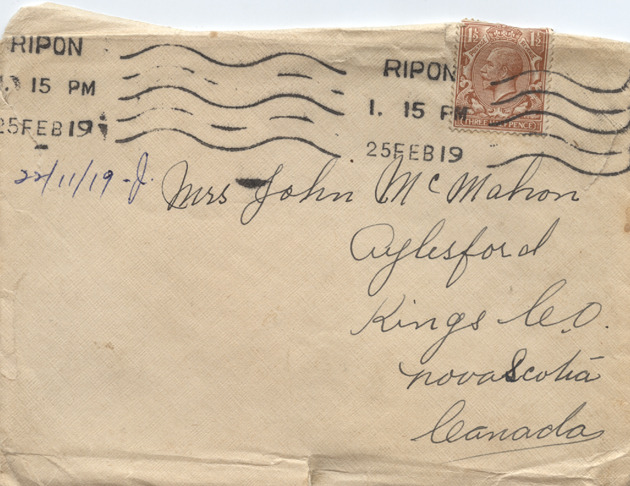 RIPON
1. 15 PM
25 FEB 19
RIPON
1. 15 PM
25 FEB 19
1½ 1½
THREE HALFPENCE
22/11/19-J.
Mrs John McMahon
Aylesford
Kings Co.
Nova Scotia
Canada